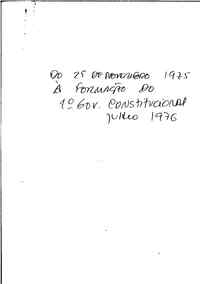 DO 25 DE NOVEMBRO 1975
À FORMAÇÃO DO
1º GOV. CONSTITUCIONAL
JULHO 1976